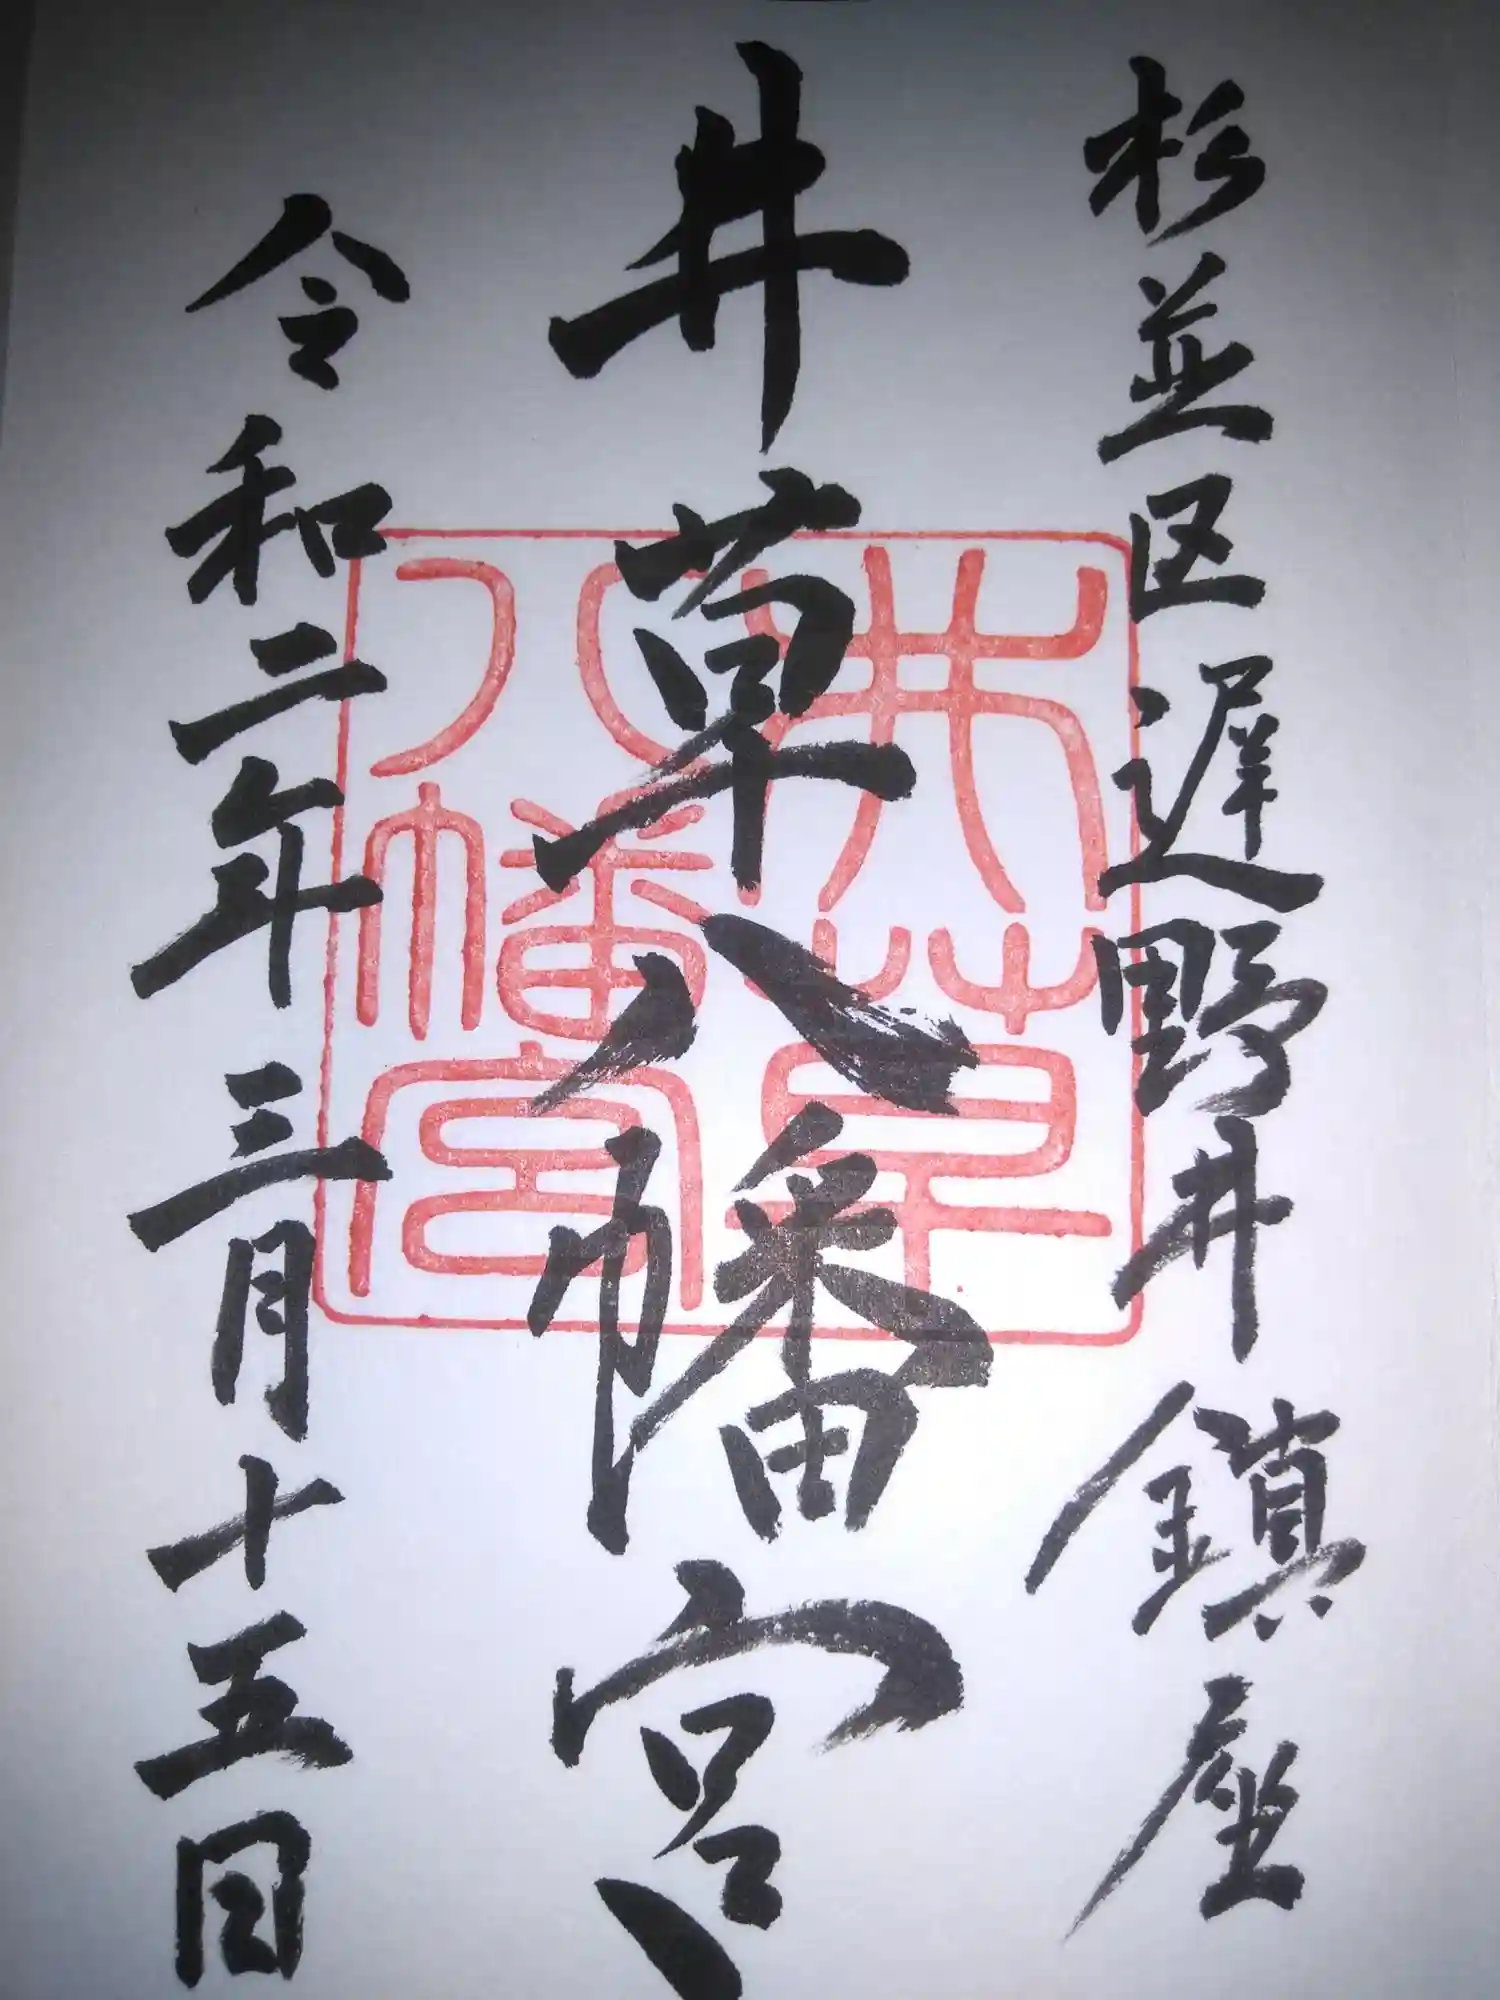 杉並区遅野井鎮座
井草八幡宮
令和二年三月十五日
井草
八幡宮